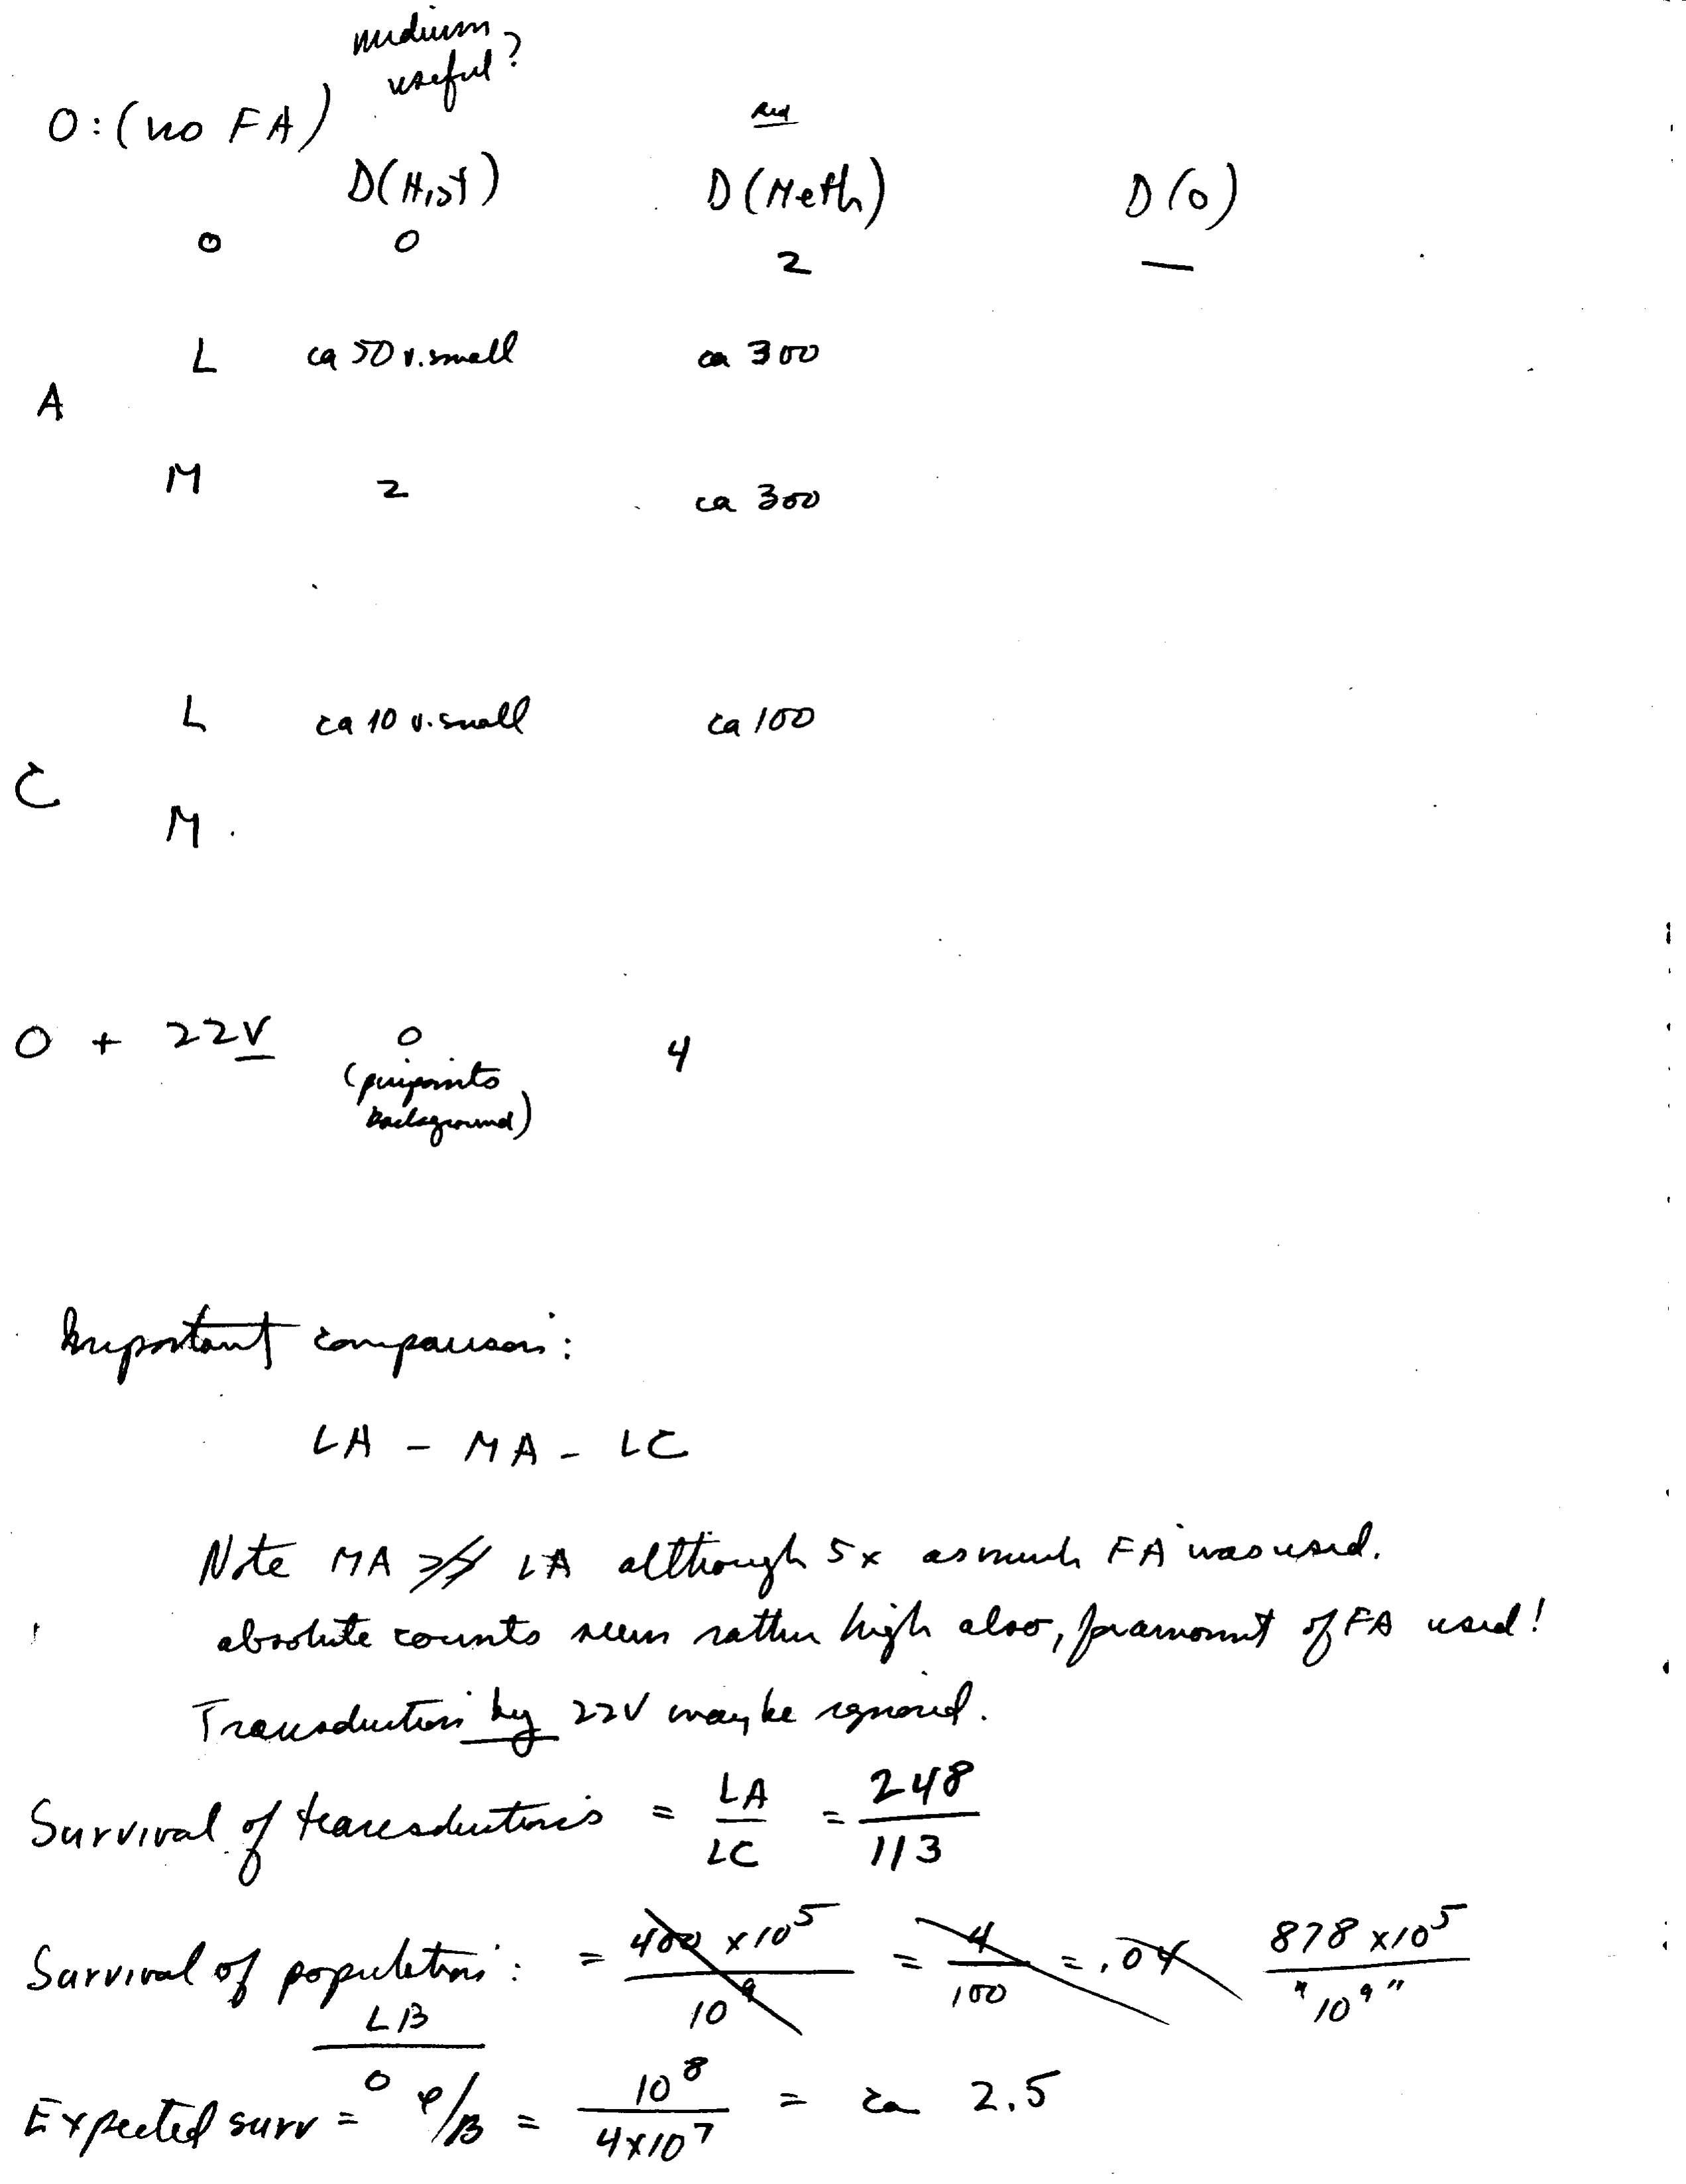 medium
useful?
O: (no FA)
Red
D(Hist) D(Meth) D(O)
O O 2 —
L ca 50 v. small ca 300
A
M 2 ca 300
L ca 10 v. small ca 100
C
M .
O + 22V O 4
(pinpoints
background)
Important comparison:
LA – MA – LC
Note MA LA although 5x as much FA was used.
absolute counts seem rather high also, for amount of FA used!
Transduction by 22V may be ignored.
Survival of transductions = LA/LC = 248/113
Survival of population: = 400 x10⁵/10⁹ = 4/100 = .04 878 x10⁵/"10⁹"
LB/O
Expected surv = φ/B = 10⁸/4x10⁷ = ca 2.5